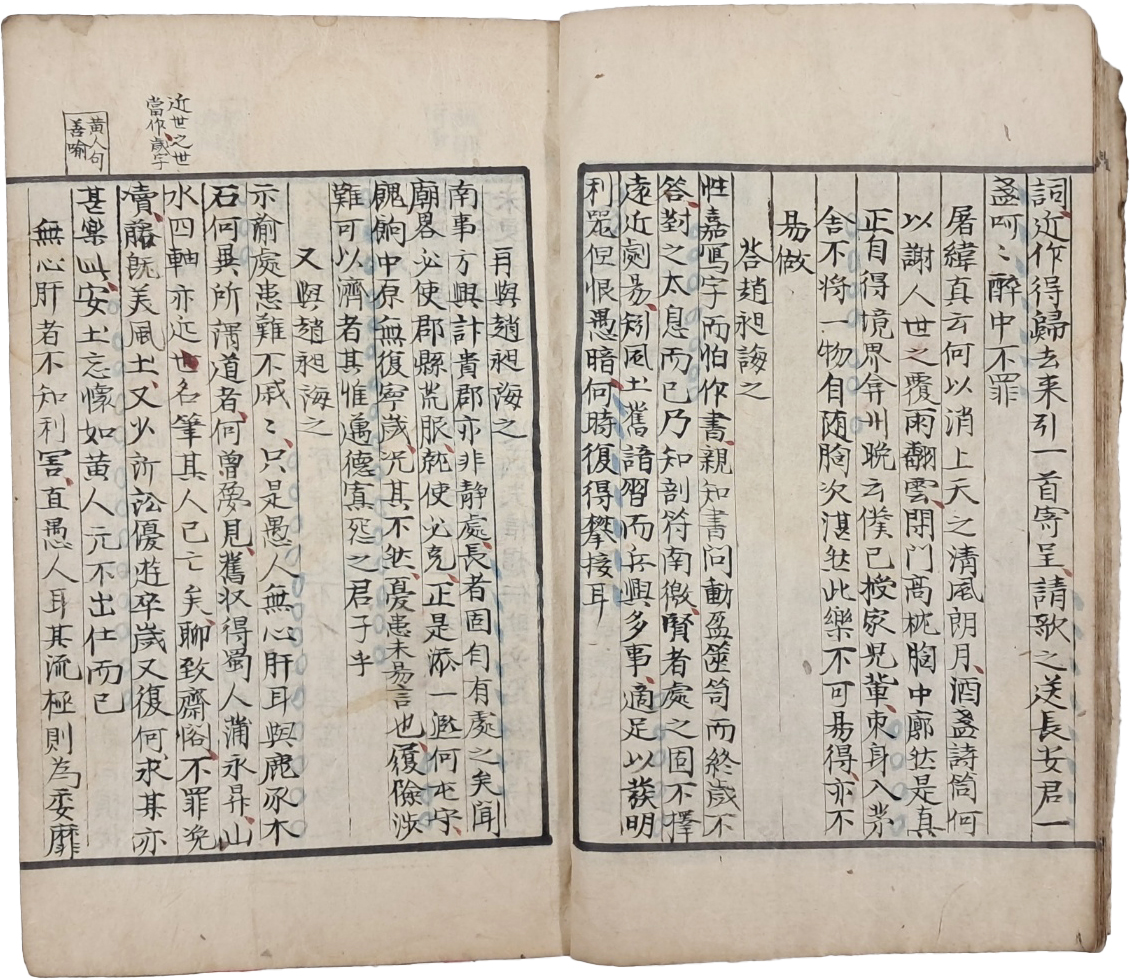 詞近作得歸去来引一首寄呈請歌之送長安君一
盞呵〻醉中不罪
屠緯真云何以消上天之清風朗月酒盞詩筒何
以謝人世之覆雨翻雲閉門高枕胸中廓然是真
正自得境界弇州晚云僕已授家兒輩束身入茅
舍不将一物自随胸次湛然此樂不可易得亦不
易做
答趙昶誨之
性嘉寫字而怕作書親知書问動盈篋笥而終歲不
答對之太息而已乃知剖符南徼賢者處之固不擇
遠近劇易矧風土舊諳習而兵興多事適足以發明
利器但恨愚暗何時復得攀接耳
再與趙昶誨之
南事方興計貴郡亦非静處長者固自有處之矣聞
廟畧必使郡縣荒服就使必克正是添一逃何屯守
餽餉中原無復寧歲况其不然憂患未易言也履儉涉
難可以濟者其惟邁德寡怨之君子乎
又與趙昶海之
示喻處患難不戚〻只是愚人無心肝耳與鹿豕木
石何異所謂道者何曾夢見舊収得蜀人蒲永昇山
水四軸亦近世名筆其人已亡矣聊致齋閤不罪浼
瀆藤既美風土又少訴訟優遊卒歲又復何求某亦
甚樂此安土忘懷如黄人元不出仕而已
無心肝者不知利害直愚人耳其流極則為委靡
近世之世
當作歲字
黄人句
善喻